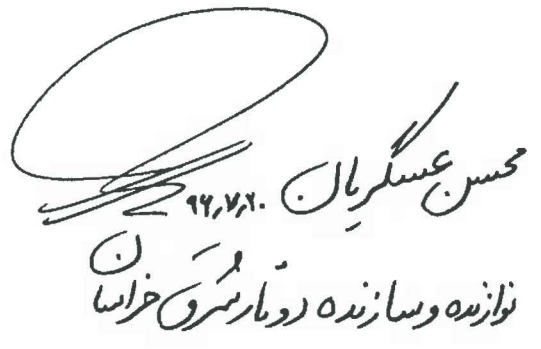 محسن عسگریان ۹۶٫۷٫۲۰
نوازنده و سازنده دوتار شرق خراسان